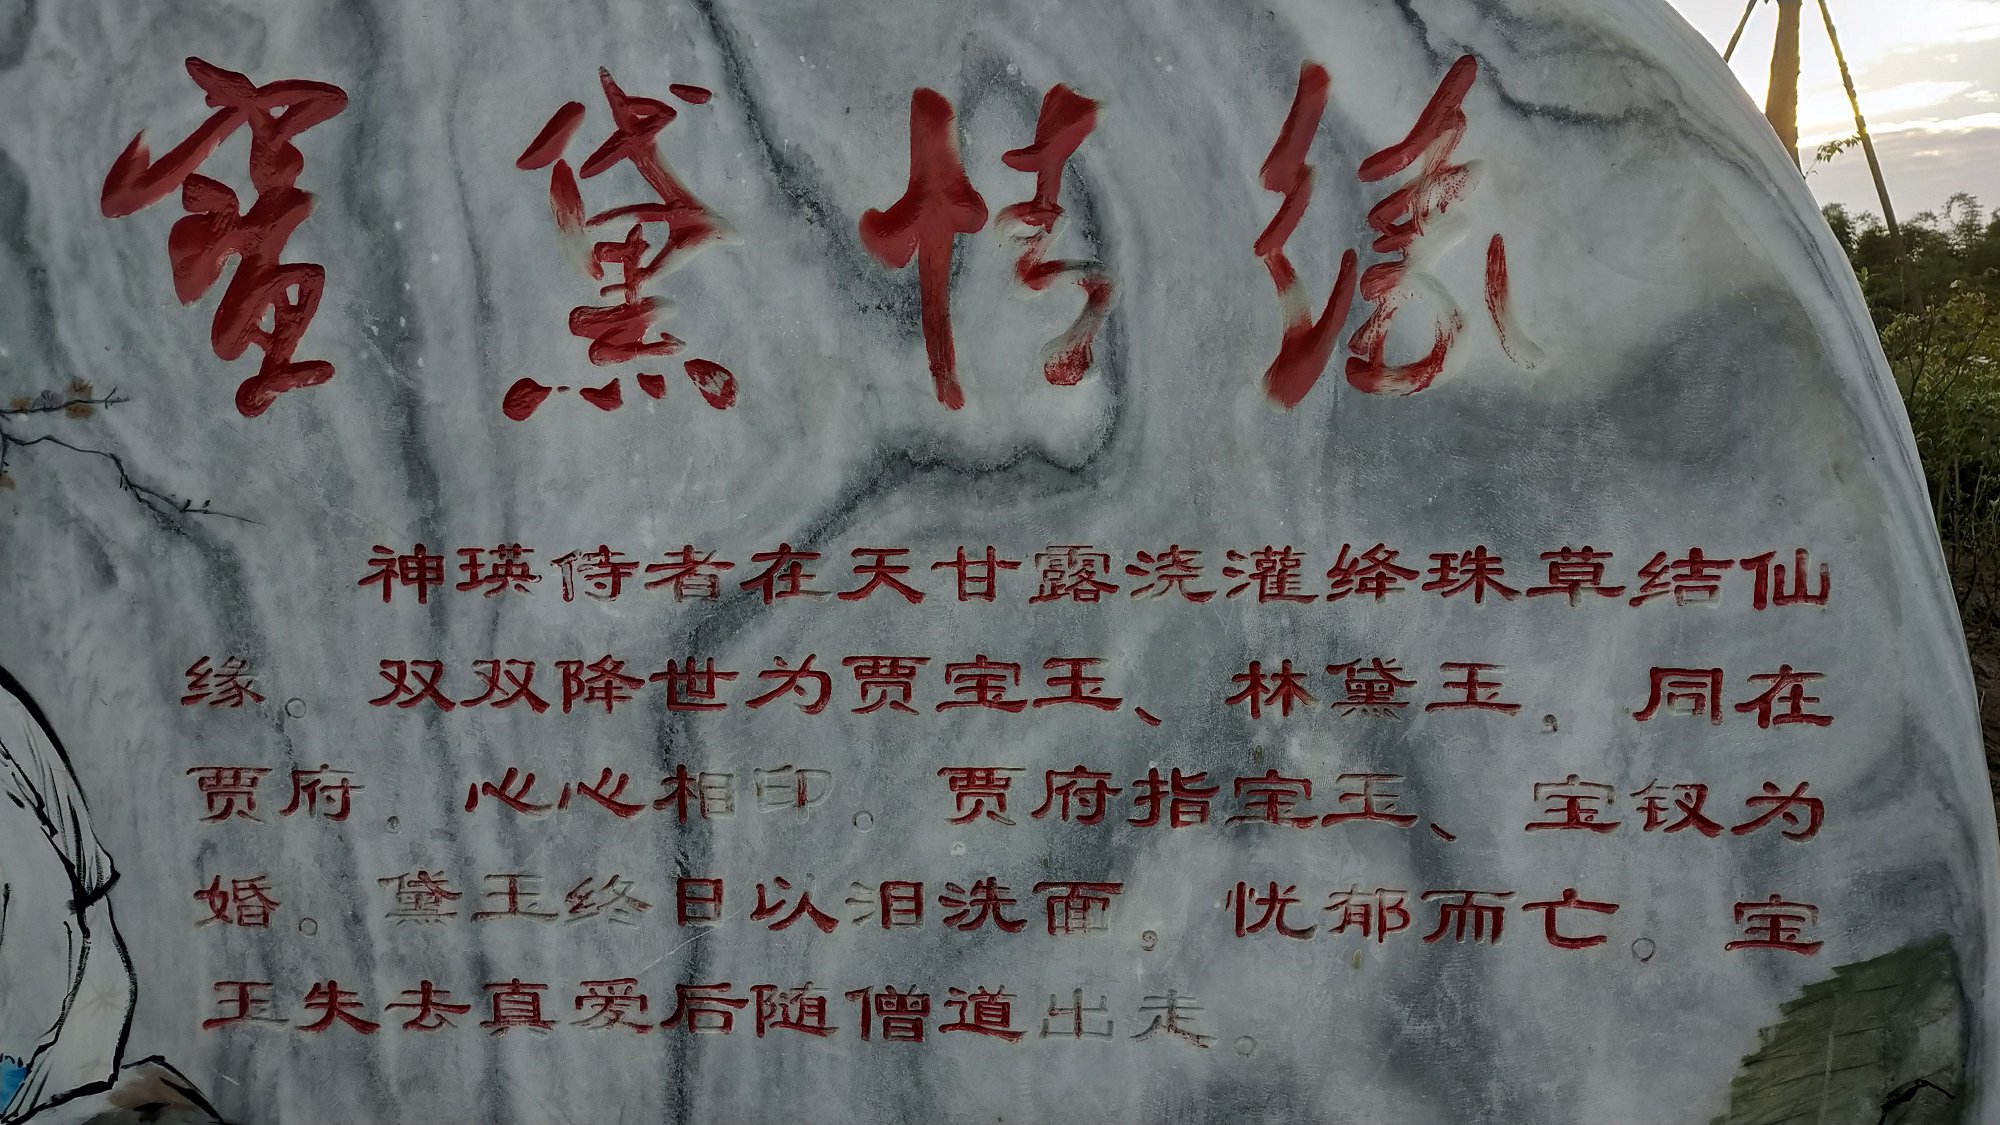 寶黛情缘
神瑛侍者在天甘露浇灌绛珠草结仙
缘。双双降世为贾宝玉、林黛玉，同在
贾府，心心相印。贾府指宝玉、宝钗为
婚。黛玉终日以泪洗面，忧郁而亡。宝
玉失去真爱后随僧道出走。